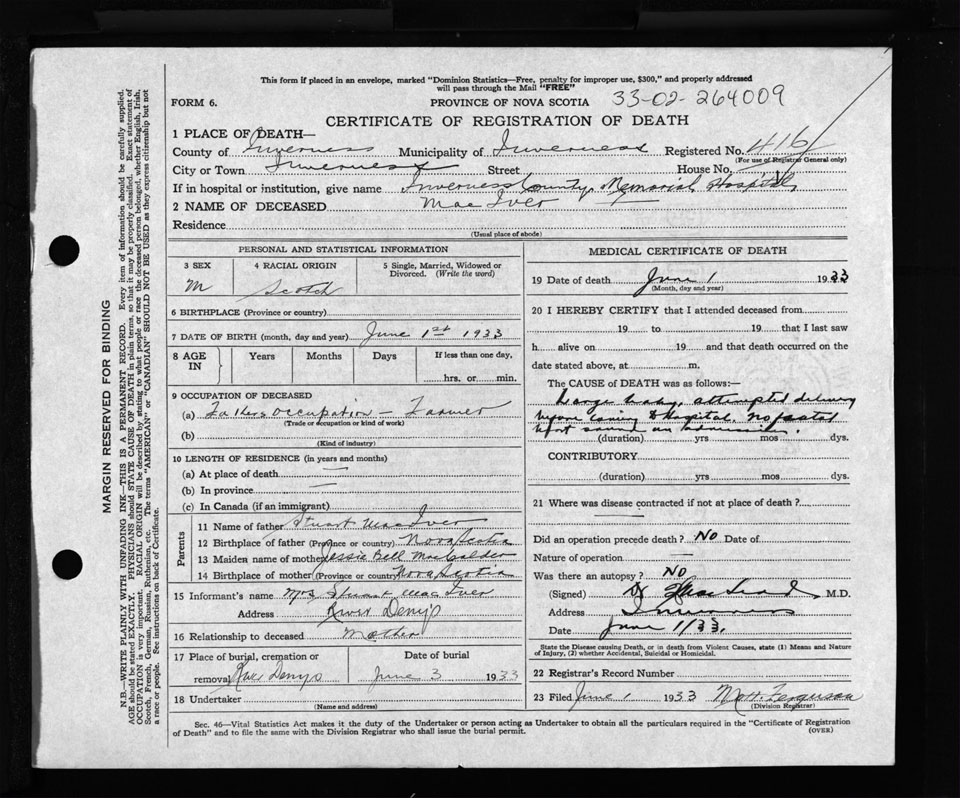 This form if placed in an envelope, marked "Dominion Statistics—Free, penalty for improper use, $300," and properly addressed
will pass through the Mail "FREE"
FORM 6.
PROVINCE OF NOVA SCOTIA 33-02-264009
CERTIFICATE OF REGISTRATION OF DEATH
1 PLACE OF DEATH—
County of Inverness Municipality of Inverness Registered No. 416
(For use of Registrar General only)
City or Town Inverness Street House No.
If in hospital or institution, give name Inverness County Memorial Hospital
2 NAME OF DECEASED Mac Iver
Residence
(Usual place of abode)
PERSONAL AND STATISTICAL INFORMATION
3 SEX 4 RACIAL ORIGIN 5 Single, Married, Widowed or
Divorced. (Write the word)
M Scotch
6 BIRTHPLACE (Province or country)
7 DATE OF BIRTH (month, day and year) June 1st 1933
8 AGE IN Years Months Days If less than one day,
hrs. or min.
9 OCCUPATION OF DECEASED
(a) Fathers occupation — Farmer
(Trade or occupation or kind of work)
(b)
(Kind of industry)
10 LENGTH OF RESIDENCE (in years and months)
(a) At place of death —
(b) In province —
(c) In Canada (if an immigrant)
Parents
11 Name of father Stuart MacIver
12 Birthplace of father (Province or country) Nova Scotia
13 Maiden name of mother Jessie Bell MacCalder
14 Birthplace of mother (Province or country) Nova Scotia
15 Informant's name Mrs Stuart Mac Iver
Address River Denys
16 Relationship to deceased Mother
17 Place of burial, cremation or Date of burial
removal River Denys June 3 1933
18 Undertaker
(Name and address)
MEDICAL CERTIFICATE OF DEATH
19 Date of death June 1 1933
(Month, day and year)
20 I HEREBY CERTIFY that I attended deceased from
19 to 19 that I last saw
h alive on 19 and that death occurred on the
date stated above, at m.
The CAUSE of DEATH was as follows:—
Large baby, attempted delivery
before coming to Hospital. No foetal
heart sound on admission.
(duration) yrs mos dys.
CONTRIBUTORY
(duration) yrs mos dys.
21 Where was disease contracted if not at place of death?
Did an operation precede death? No Date of
Nature of operation —
Was there an autopsy? No
(Signed) Dr M.D.
Address Inverness
Date June 1/33.
State the Disease causing Death, or in death from Violent Causes, state (1) Means and Nature
of Injury, (2) whether Accidental, Suicidal or Homicidal.
22 Registrar's Record Number
23 Filed June 1 1933 M.H. Ferguson
(Division Registrar)
Sec. 46—Vital Statistics Act makes it the duty of the Undertaker or person acting as Undertaker to obtain all the particulars required in the "Certificate of Registration
of Death" and to file the same with the Division Registrar who shall issue the burial permit. (OVER)
MARGIN RESERVED FOR BINDING
N.B.—WRITE PLAINLY WITH UNFADING INK—THIS IS A PERMANENT RECORD. Every item of information should be carefully supplied.
AGE should be stated EXACTLY. PHYSICIANS should STATE CAUSE OF DEATH in plain terms, so that it may be properly classified. Exact statement of
OCCUPATION is very important. RACIAL ORIGIN will be described by stating to what people or race the deceased person belonged, whether English, Irish,
Scotch, French, German, Russian, Ruthenian, etc. The terms "AMERICAN" or "CANADIAN" SHOULD NOT BE USED as they express citizenship but not
a race or people. See instructions on back of Certificate.